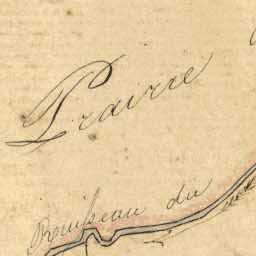 Prairie
Ruisseau du